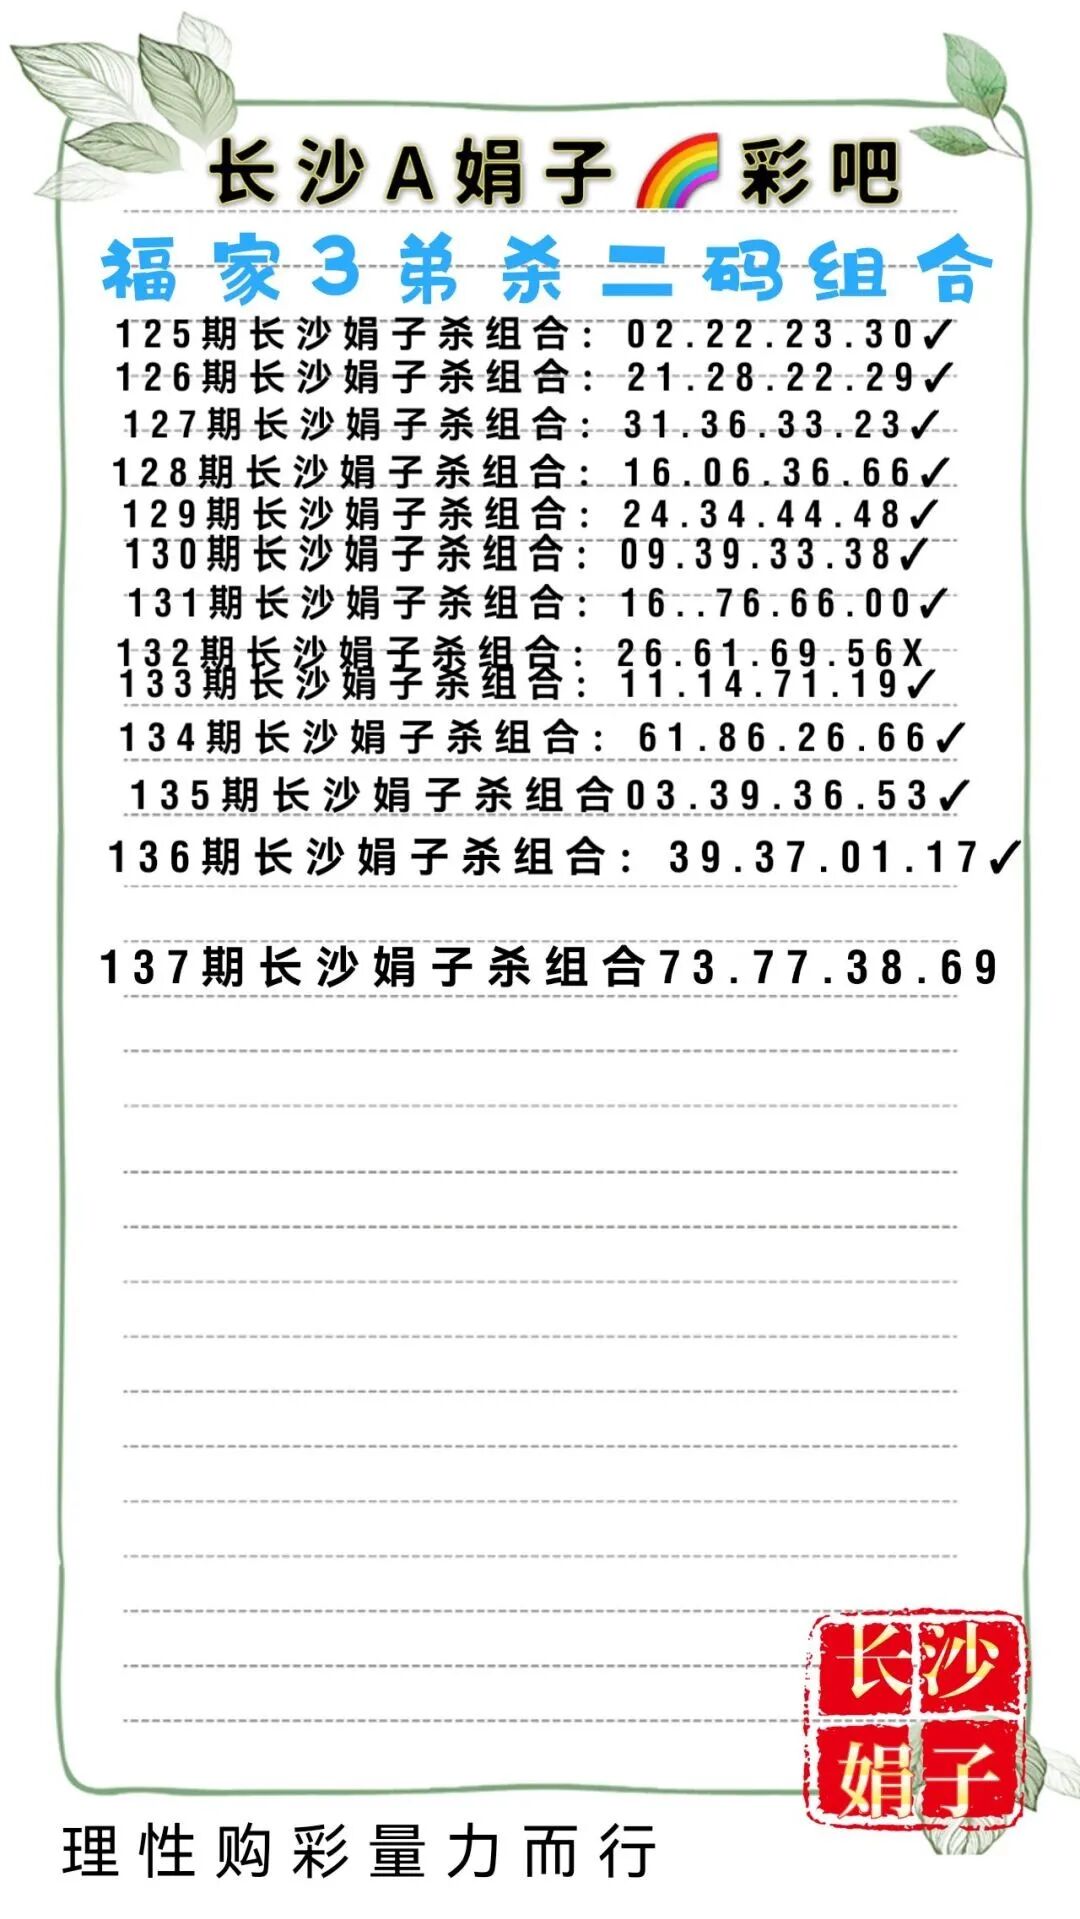 长沙A娟子🌈彩吧
福家3弟杀二码组合
125期长沙娟子杀组合：02.22.23.30✓
126期长沙娟子杀组合：21.28.22.29✓
127期长沙娟子杀组合：31.36.33.23✓
128期长沙娟子杀组合：16.06.36.66✓
129期长沙娟子杀组合：24.34.44.48✓
130期长沙娟子杀组合：09.39.33.38✓
131期长沙娟子杀组合：16..76.66.00✓
132期长沙娟子杀组合：26.61.69.56X
133期长沙娟子杀组合：11.14.71.19✓
134期长沙娟子杀组合：61.86.26.66✓
135期长沙娟子杀组合03.39.36.53✓
136期长沙娟子杀组合：39.37.01.17✓
137期长沙娟子杀组合73.77.38.69
长沙
娟子
理性购彩量力而行